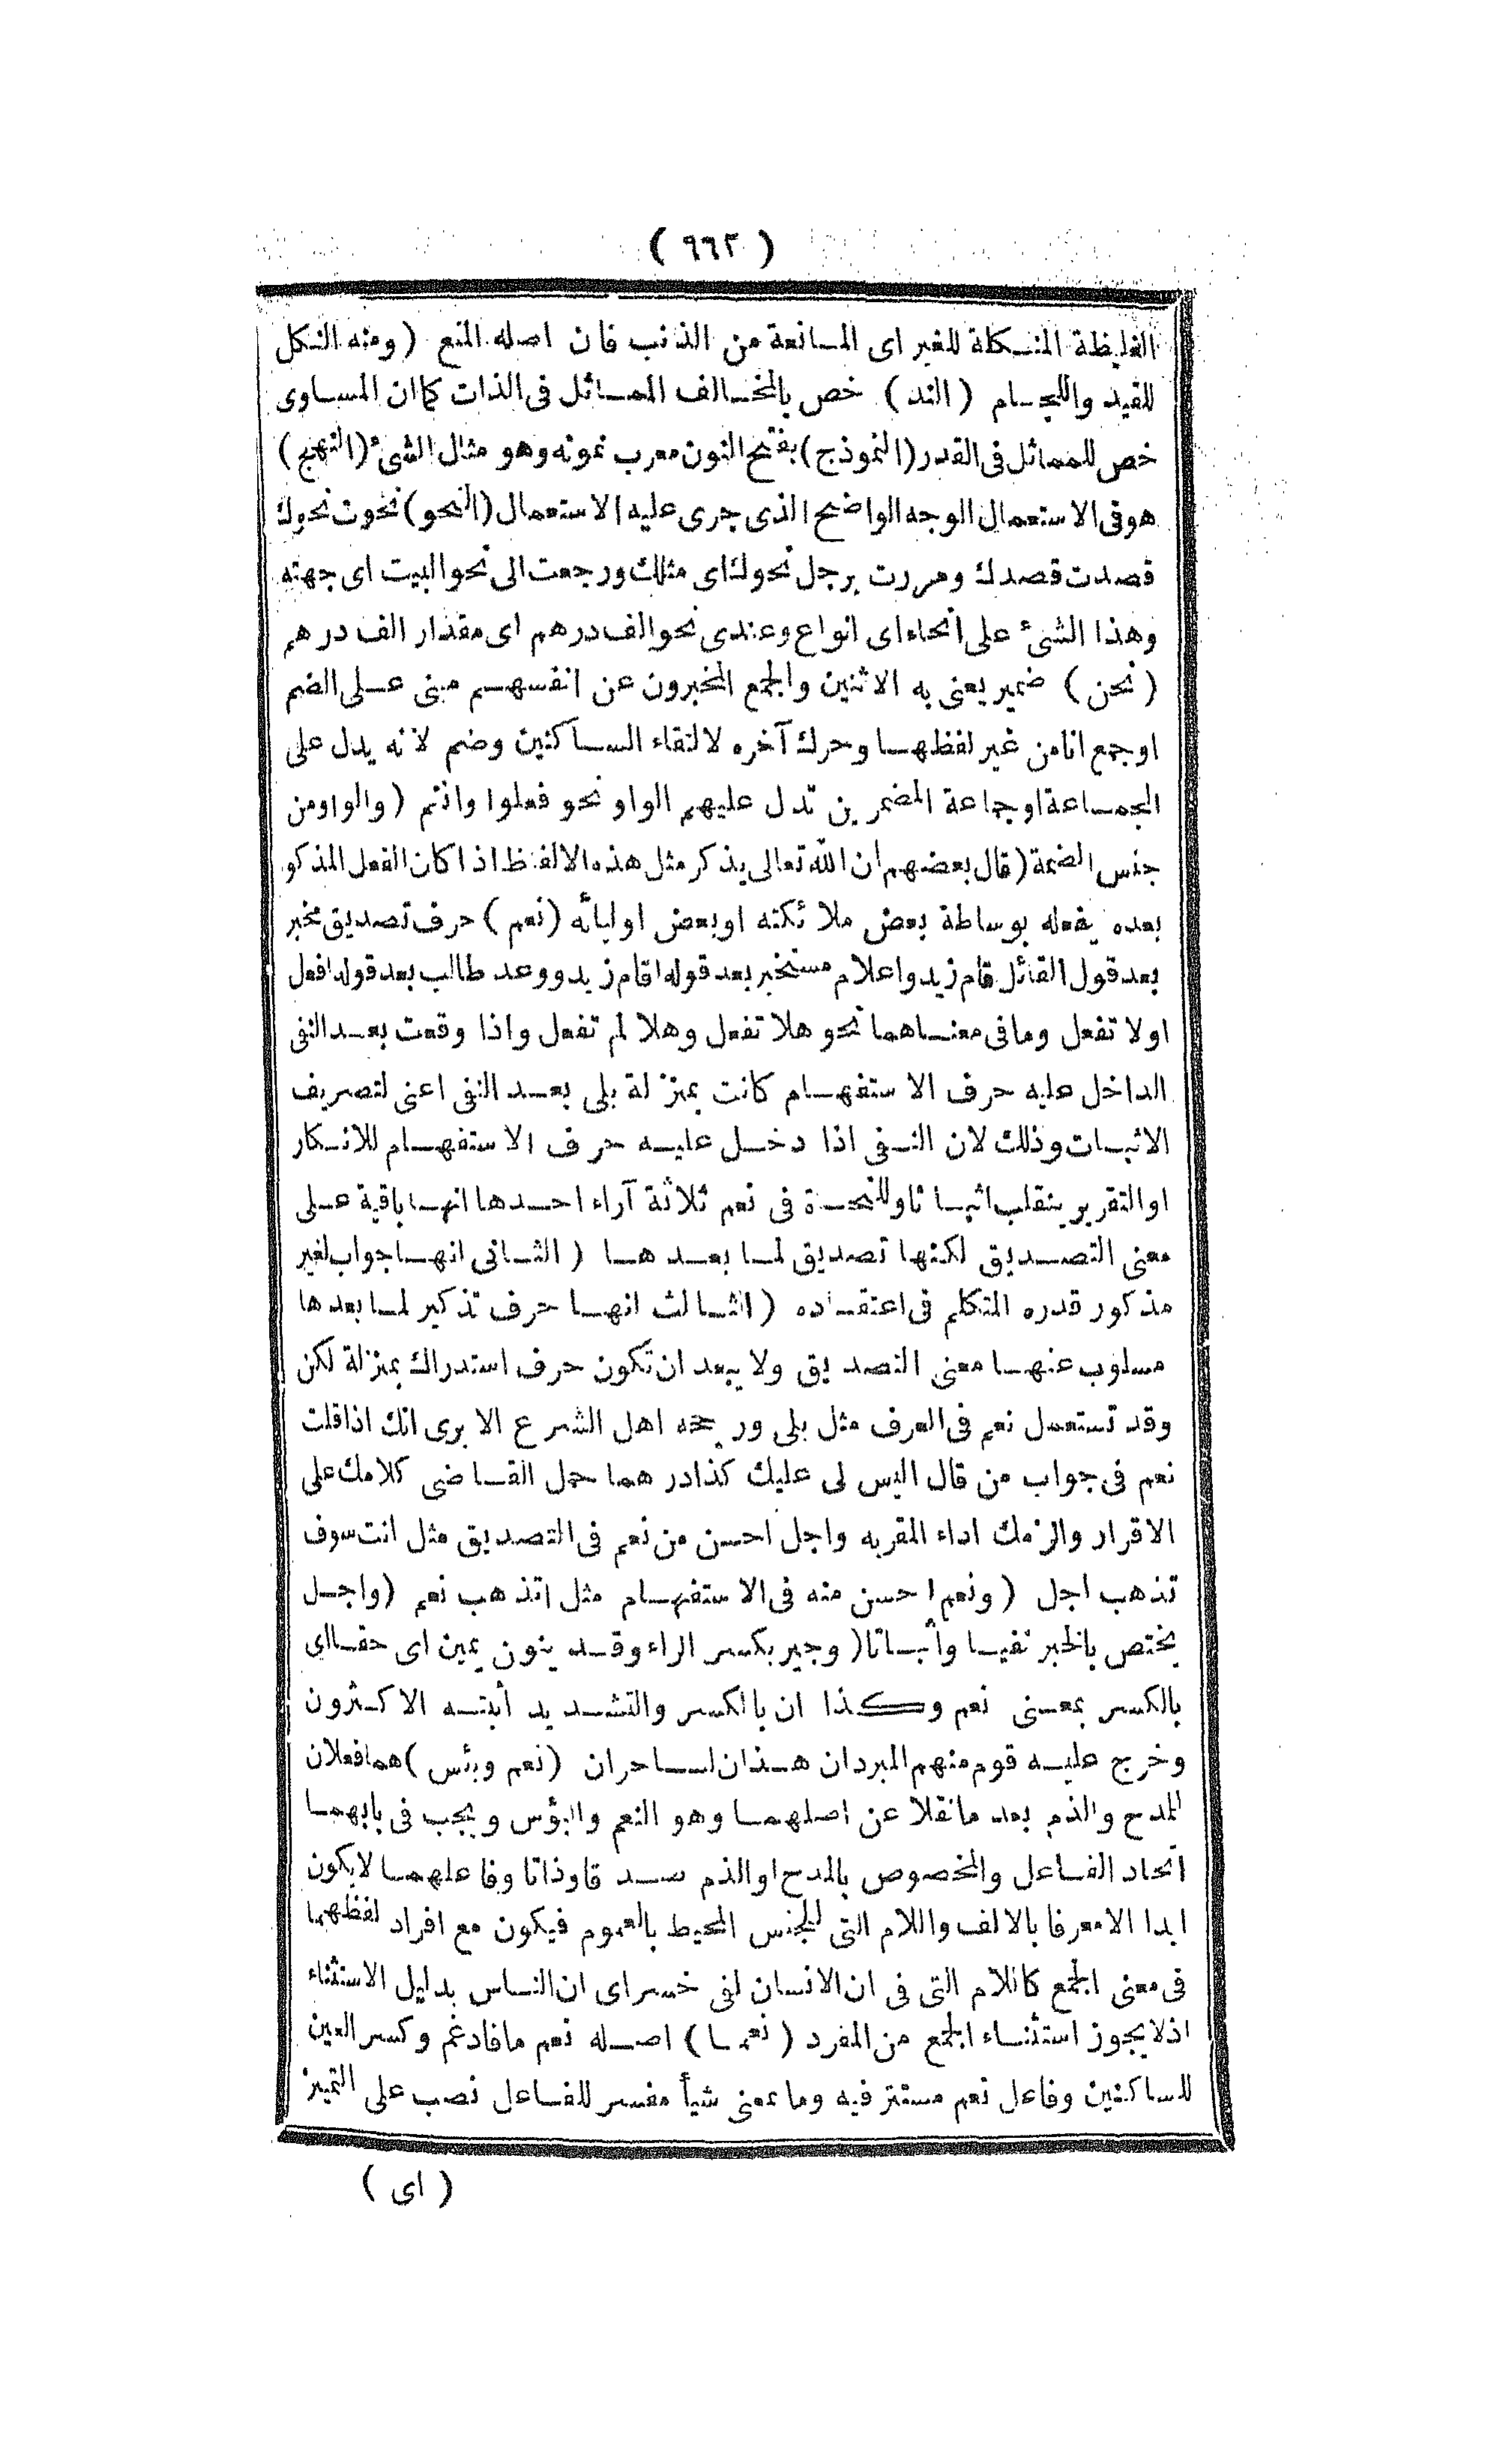 ( ٦٦٢ )
الغليظة المنكلة للغير اى المانعة من الذنب فان اصله المنع ( ومنه النكل
للقيد واللجام ( الند ) خص بالمخالف المماثل فى الذات كما ان المساوى
خص للمماثل فى القدر ( النموذج ) بفتح النون معرب نمونه وهو مثال الشىء ( النهج )
هو فى الاستعمال الوجه الواضح الذى جرى عليه الاستعمال ( النحو ) نحوت نحوك
قصدت قصدك ومررت برجل نحوك اى مثلك ورجعت الى نحو البيت اى جهته
وهذا الشىء على انحاء اى انواع وعندى نحو الف درهم اى مقدار الف درهم
( نحن ) ضمير يعنى به الاثنين والجمع المخبرون عن انفسهم مبنى على الضم
او جمع انا من غير لفظها وحرك آخره لالتقاء الساكنين وضم لانه يدل على
الجماعة او جماعة المضمرين تدل عليهم الواو نحو فعلوا وانتم ( والواو من
جنس الضمة ( قال بعضهم ان الله تعالى يذكر مثل هذه الالفاظ اذا كان الفعل المذكو
بعده يفعله بوساطة بعض ملائكته او بعض اوليائه ( نعم ) حرف تصديق مخبر
بعد قول القائل قام زيد واعلام مستخبر بعد قوله اقام زيد ووعد طالب بعد قوله افعل
او لا تفعل وما فى معناهما نحو هلا تفعل وهلا لم تفعل واذا وقعت بعد النفى
الداخل عليه حرف الاستفهام كانت بمنزلة بلى بعد النفى اعنى لتصريف
الاثبات وذلك لان النفى اذا دخل عليه حرف الاستفهام للانكار
او التقرير ينقلب اثباتا وللنحاة فى نعم ثلاثة آراء احدها انها باقية على
معنى التصديق لكنها تصديق لما بعدها ( الثانى انها جواب لغير
مذكور قدره المتكلم فى اعتقاده ( الثالث انها حرف تذكير لما بعدها
مسلوب عنها معنى التصديق ولا يبعد ان تكون حرف استدراك بمنزلة لكن
وقد تستعمل نعم فى العرف مثل بلى ورجحه اهل الشرع الا يرى انك اذا قلت
نعم فى جواب من قال اليس لى عليك كذا درهما حمل القاضى كلامك على
الاقرار والزمك اداء المقر به واجل احسن من نعم فى التصديق مثل انت سوف
تذهب اجل ( ونعم احسن منه فى الاستفهام مثل اتذهب نعم ( واجل
يختص بالخبر نفيا واثباتا ( وجير بكسر الراء وقد ينون يمين اى حقا اى
بالكسر بمعنى نعم وكذا ان بالكسر والتشديد أثبته الاكثرون
وخرج عليه قوم منهم المبرد ان هذان لساحران ( نعم وبئس ) هما فعلان
للمدح والذم بعد ما نقلا عن اصلهما وهو النعم والبؤس ويجب فى بابهما
اتحاد الفاعل والمخصوص بالمدح او الذم صدقا وذاتا وفاعلهما لا يكون
ابدا الا معرفا بالالف واللام التى للجنس المحيط بالعموم فيكون مع افراد لفظهما
فى معنى الجمع كاللام التى فى ان الانسان لفى خسر اى ان الناس بدليل الاستثناء
اذ لا يجوز استثناء الجمع من المفرد ( نعما ) اصله نعم ما فادغم وكسر العين
للساكنين وفاعل نعم مستتر فيه وما بمعنى شيأ مفسر للفاعل نصب على التمييز
( اى )